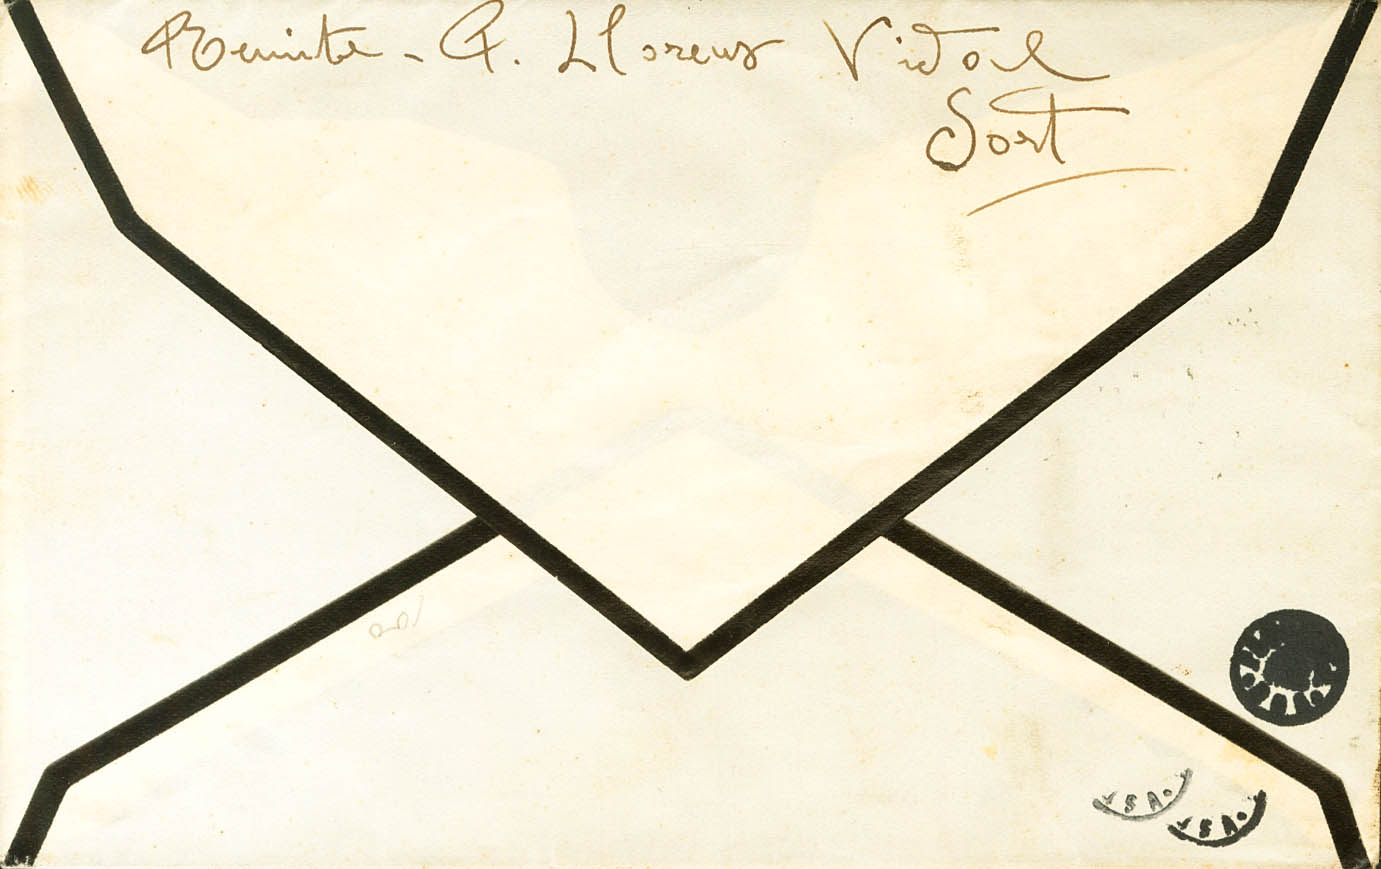 Remite - A. Llorens Vidal
Sort